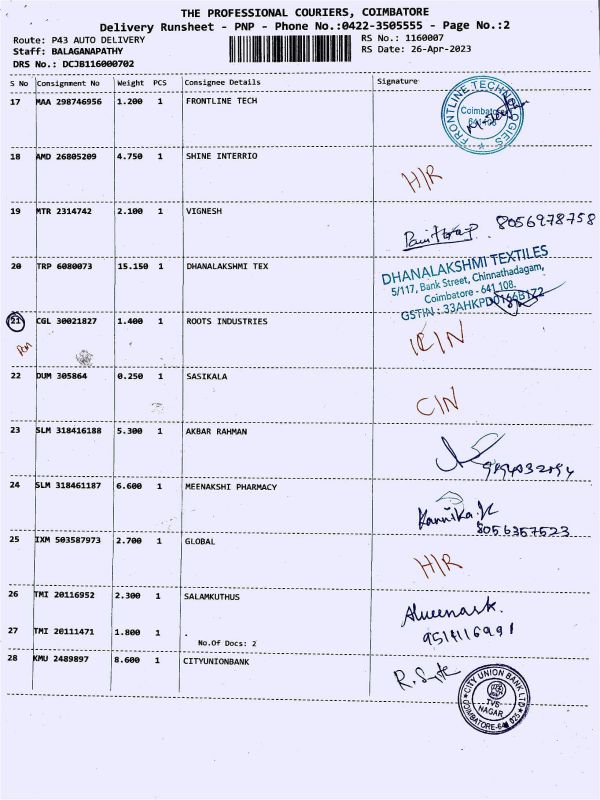 THE PROFESSIONAL COURIERS, COIMBATORE
Delivery Runsheet - PNP - Phone No.:0422-3505555 - Page No.:2
Route: P43 AUTO DELIVERY RS No.: 1160007
Staff: BALAGANAPATHY RS Date: 26-Apr-2023
DRS No.: DCJB116000702
S No Consignment No Weight PCS Consignee Details Signature
17 MAA 298746956 1.200 1 FRONTLINE TECH
FRONTLINE TECHNOLOGIES
Coimbatore
18 AMD 26805209 4.750 1 SHINE INTERRIO H/R
19 MTR 2314742 2.100 1 VIGNESH 8056978758
20 TRP 6080073 15.150 1 DHANALAKSHMI TEX
DHANALAKSHMI TEXTILES
5/117, Bank Street, Chinnathadagam,
Coimbatore - 641 108.
GSTIN : 33AHKPD0166B1Z2
21 CGL 30021827 1.400 1 ROOTS INDUSTRIES
22 DUM 305864 0.250 1 SASIKALA C/N
23 SLM 318416188 5.300 1 AKBAR RAHMAN
24 SLM 318461187 6.600 1 MEENAKSHI PHARMACY Kannika.K
8056357523
25 IXM 503587973 2.700 1 GLOBAL H/R
26 TMI 20116952 2.300 1 SALAMKUTHUS
27 TMI 20111471 1.800 1 .
No.Of Docs: 2
28 KMU 2489897 8.600 1 CITYUNIONBANK
CITY UNION BANK LTD
TVS
NAGAR
COIMBATORE-641 025